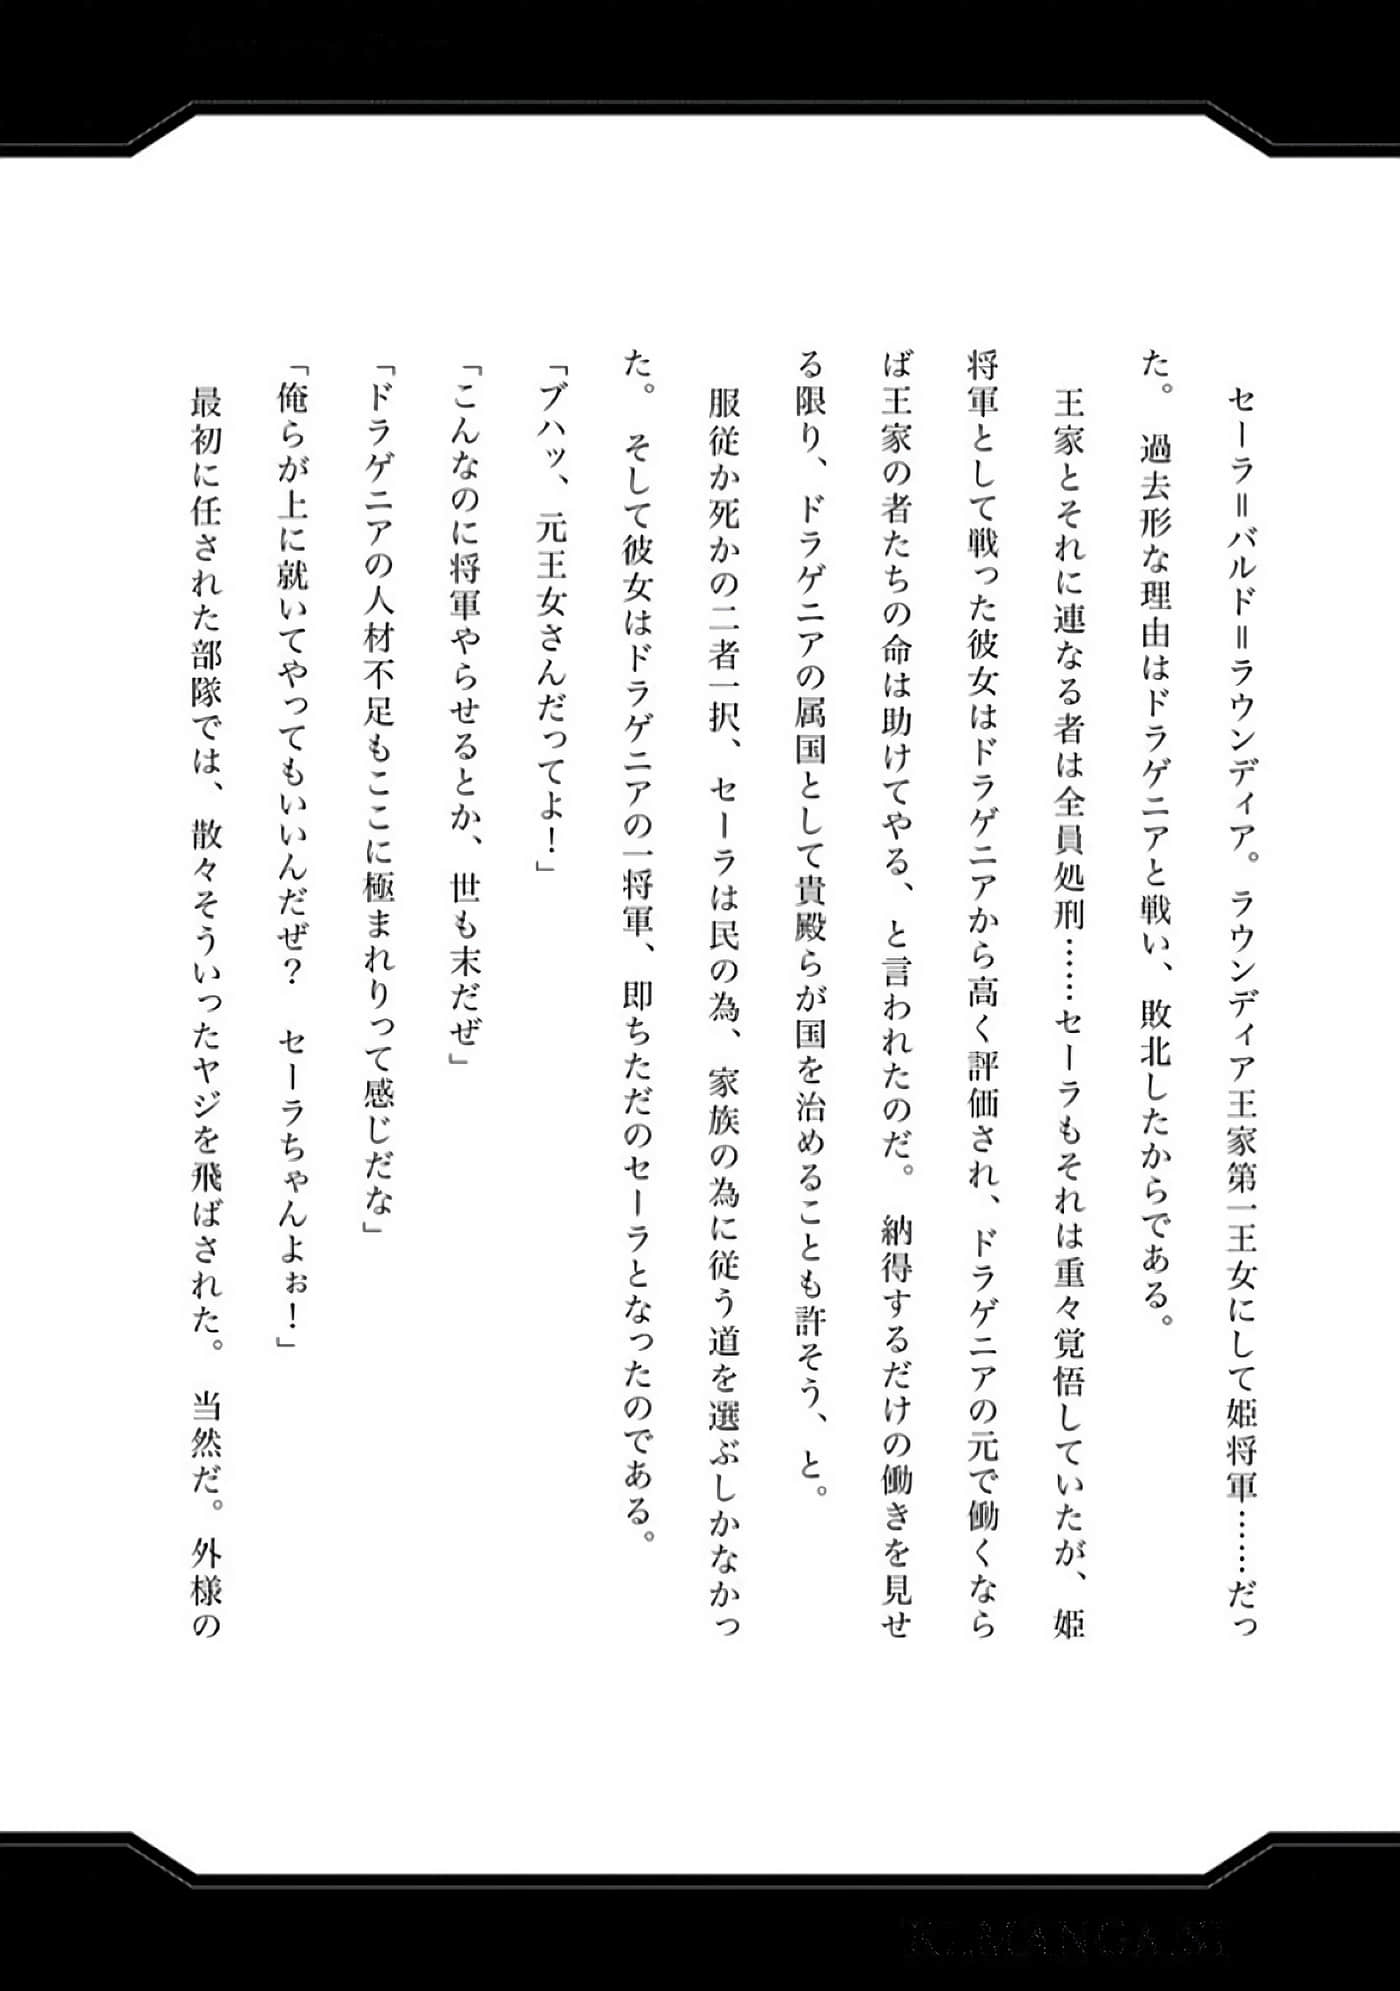 セーラ＝バルド＝ラウンディア。ラウンディア王家第一王女にして姫将軍……だっ
た。　過去形な理由はドラゲニアと戦い、敗北したからである。
王家とそれに連なる者は全員処刑……セーラもそれは重々覚悟していたが、姫
将軍として戦った彼女はドラゲニアから高く評価され、ドラゲニアの元で働くなら
ば王家の者たちの命は助けてやる、と言われたのだ。　納得するだけの働きを見せ
る限り、ドラゲニアの属国として貴殿らが国を治めることも許そう、と。
服従か死かの二者一択、セーラは民の為、家族の為に従う道を選ぶしかなかっ
た。　そして彼女はドラゲニアの一将軍、即ちただのセーラとなったのである。
「ブハッ、元王女さんだってよ！」
「こんなのに将軍やらせるとか、世も末だぜ」
「ドラゲニアの人材不足もここに極まれりって感じだな」
「俺らが上に就いてやってもいいんだぜ？　セーラちゃんよぉ！」
最初に任された部隊では、散々そういったヤジを飛ばされた。　当然だ。外様の